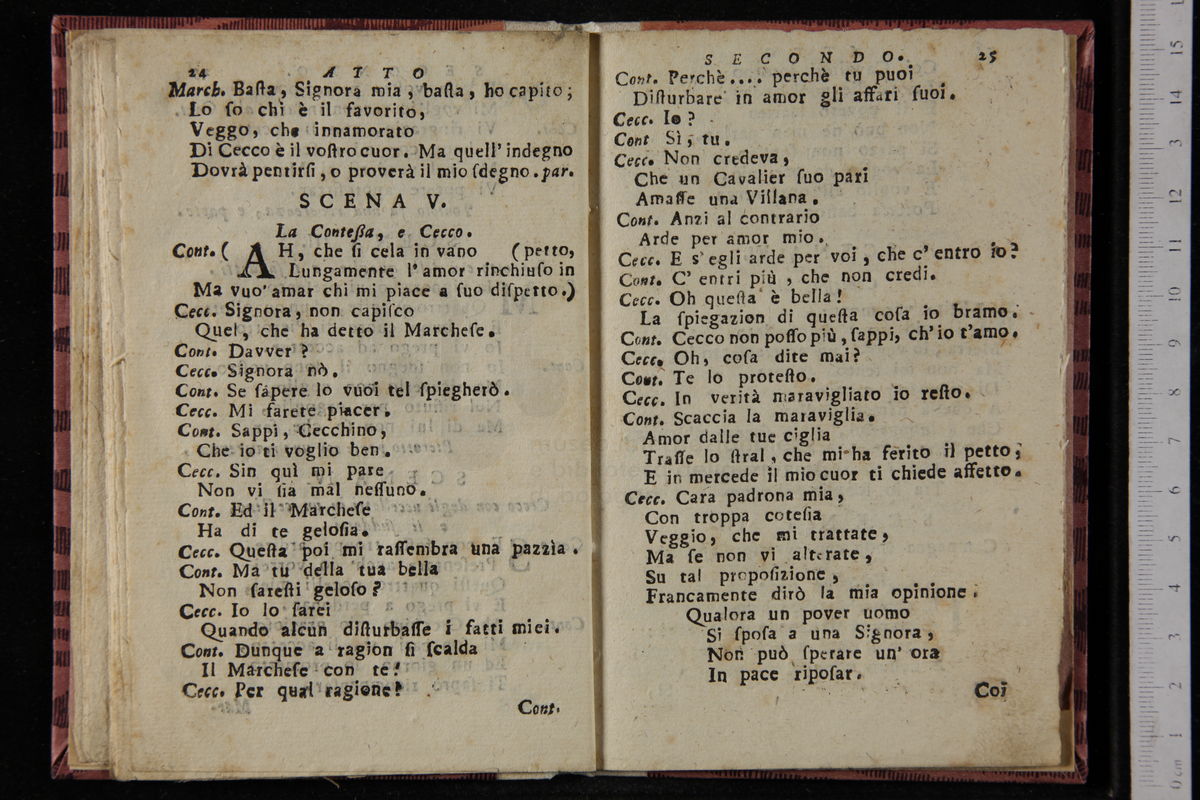 24 ATTO
March. Baſta, Signora mia, baſta, ho capito;
Lo ſo chi è il favorito,
Veggo, che innamorato
Di Cecco è il voſtro cuor. Ma quell' indegno
Dovrà pentirſi, o proverà il mio ſdegno. par.
SCENA V.
La Conteſſa, e Cecco.
Cont. ( AH, che ſi cela in vano (petto,
Lungamente l' amor rinchiuſo in
Ma vuo' amar chi mi piace a ſuo diſpetto.)
Cecc. Signora, non capiſco
Quel, che ha detto il Marcheſe.
Cont. Davver?
Cecc. Signora nò.
Cont. Se ſapere lo vuoi tel ſpiegherò.
Cecc. Mi farete piacer.
Cont. Sappi, Cecchino,
Che io ti voglio ben.
Cecc. Sin quì mi pare
Non vi ſia mal neſſuno.
Cont. Ed il Marcheſe
Ha di te geloſia.
Cecc. Queſta poi mi raſſembra una pazzìa.
Cont. Ma tu della tua bella
Non ſareſti geloſo?
Cecc. Io lo ſarei
Quando alcun diſturbaſſe i fatti miei.
Cont. Dunque a ragion ſi ſcalda
Il Marcheſe con te!
Cecc. Per qual ragione?
Cont.
SECONDO. 25
Cont. Perchè.... perchè tu puoi
Diſturbare in amor gli affari ſuoi.
Cecc. Io?
Cont Sì, tu.
Cecc. Non credeva,
Che un Cavalier ſuo pari
Amaſſe una Villana.
Cont. Anzi al contrario
Arde per amor mio.
Cecc. E s' egli arde per voi, che c' entro io?
Cont. C' entri più, che non credi.
Cecc. Oh queſta è bella!
La ſpiegazion di queſta coſa io bramo.
Cont. Cecco non poſſo più, ſappi, ch' io t'amo.
Cecc. Oh, coſa dite mai?
Cont. Te lo proteſto.
Cecc. In verità maravigliato io reſto.
Cont. Scaccia la maraviglia.
Amor dalle tue ciglia
Traſſe lo ſtral, che mi ha ferito il petto;
E in mercede il mio cuor ti chiede affetto.
Cecc. Cara padrona mia,
Con troppa coteſia
Veggio, che mi trattate,
Ma ſe non vi alterate,
Su tal propoſizione,
Francamente dirò la mia opinione.
Qualora un pover uomo
Si ſpoſa a una Signora,
Non può ſperare un' ora
In pace ripoſar.
Coi
15
14
13
12
11
10
9
8
7
6
5
4
3
2
1
0 cm